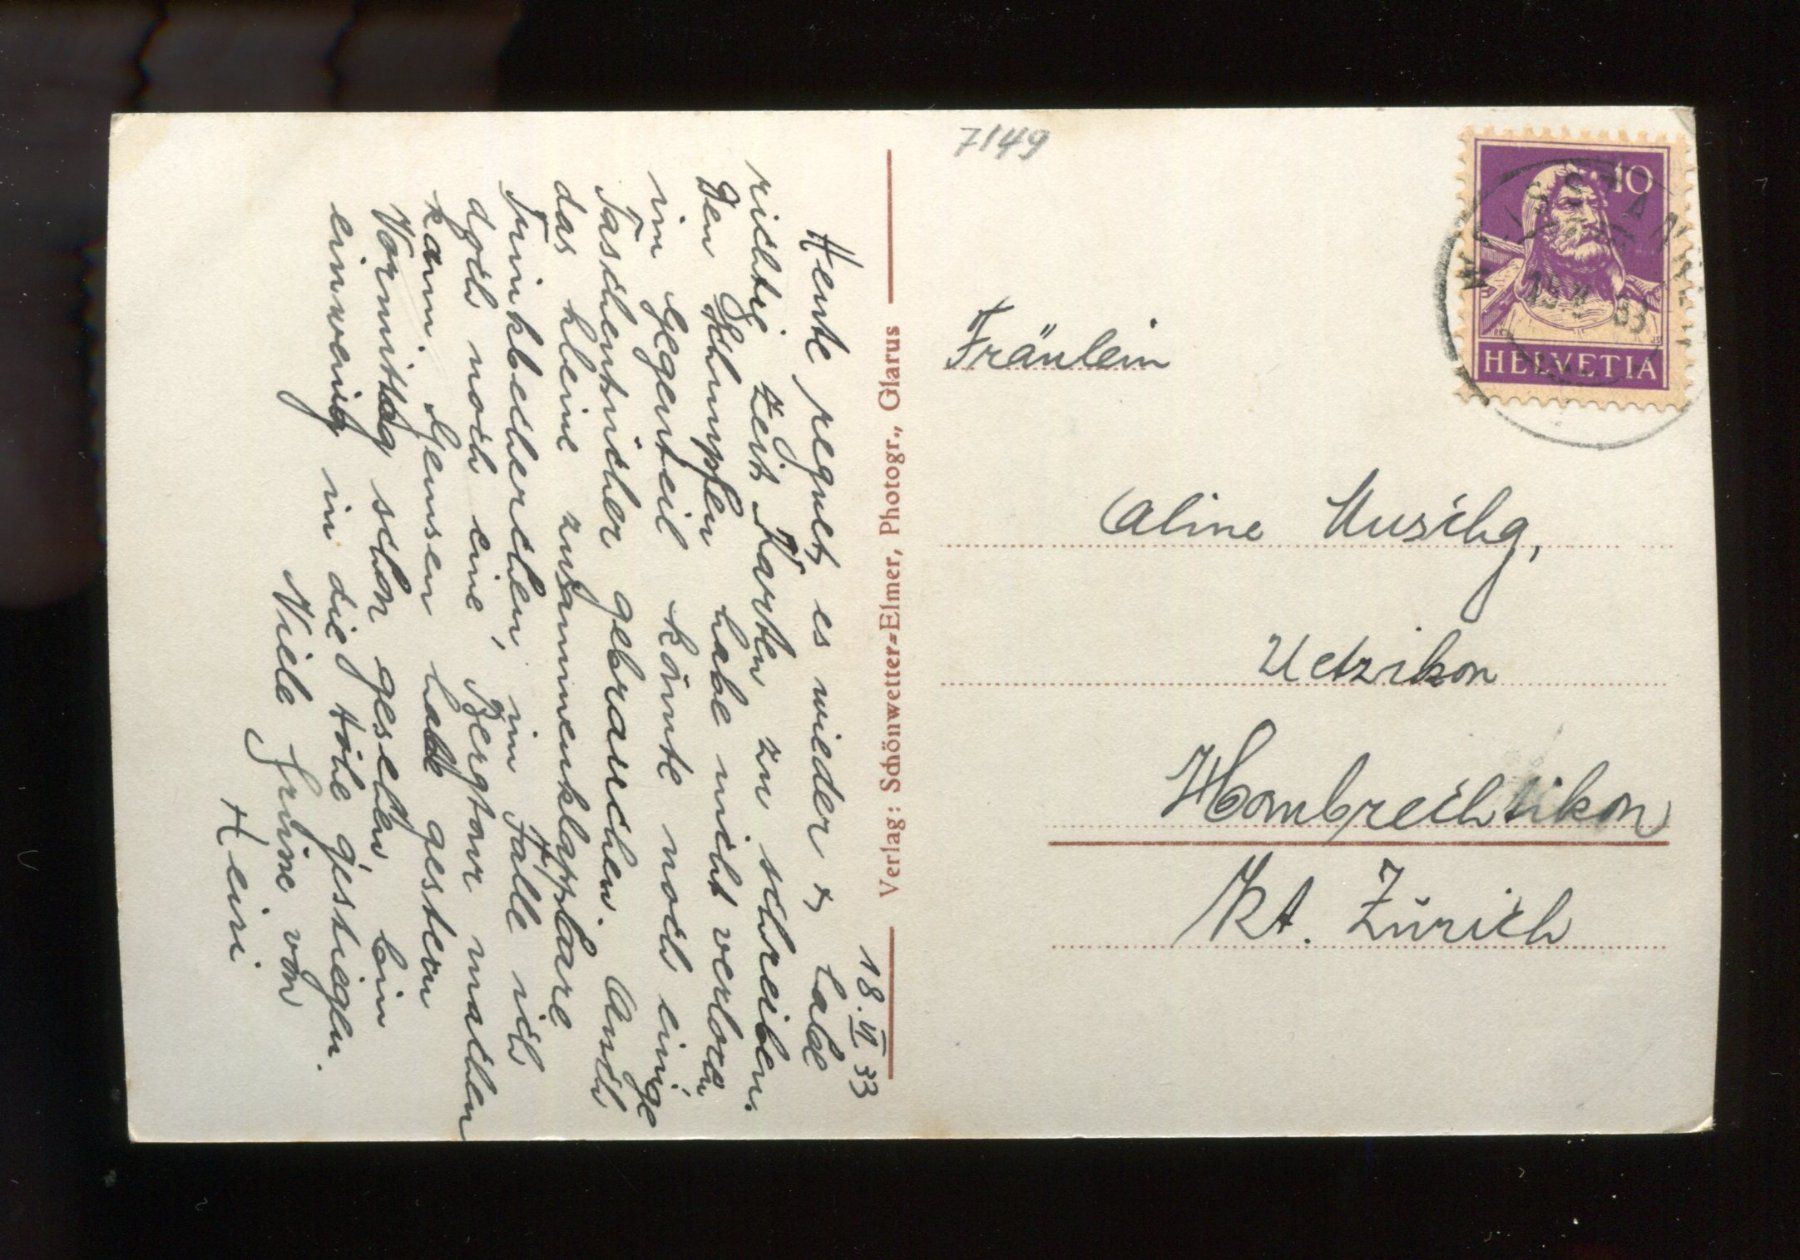 7149
10
HELVETIA
WEISSTANNEN
33
Fräulein
Aline Muschg,
Uetzikon
Hombrechtikon
Kt. Zürich
Verlag: Schönwetter-Elmer, Photogr., Glarus
18. VI 33
Heute regnet es wieder & habe
richtig Zeit Karten zu schreiben.
Den Schnupfen habe nicht verloren
im Gegenteil könnte noch einige
Taschentücher gebrauchen. Auch
das kleine zusammenklappbare
Trinkbecherchen, im Falle ich
doch noch eine Bergtour machen
kann. Gemsen habe gestern
Vormittag schon gesehen, bin
einwenig in die Höhe gestiegen.
Viele Grüsse von
Heini